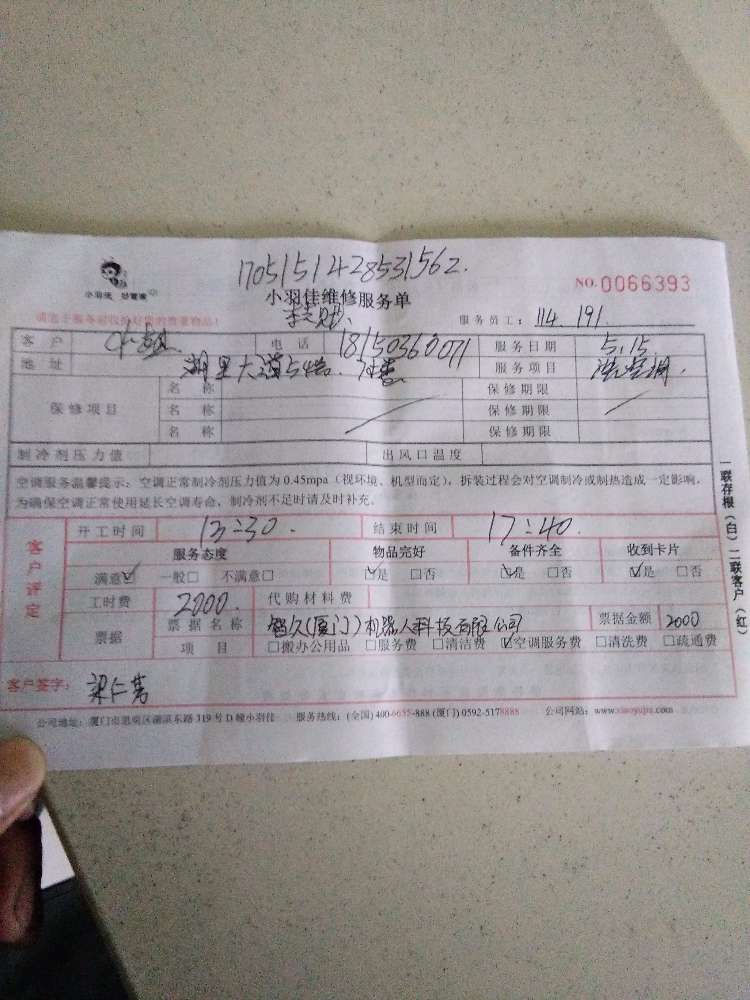 1705151428531562.
小羽佳 妙管家
小羽佳维修服务单
NO.0066393
服务员工: 114. 191.
客户 电话 18150360071 服务日期 5.15
地址 湖里大道54 服务项目 洗空调.
保修项目
名称 保修期限
名称 保修期限
名称 保修期限
制冷剂压力值 出风口温度
空调服务温馨提示：空调正常制冷剂压力值为 0.45mpa（视环境、机型而定），拆装过程会对空调制冷或制热造成一定影响，
为确保空调正常使用延长空调寿命，制冷剂不足时请及时补充。
一联存根（白）二联客户（红）
客户评定
开工时间 13:30. 结束时间 17:40.
服务态度 物品完好 备件齐全 收到卡片
满意☑ 一般□ 不满意□ ☑是 □否 ☑是 □否 ☑是 □否
工时费 2000. 代购材料费
票据 票据名称 智久(厦门)机器人科技有限公司 票据金额 2000
项目 □搬办公用品 □服务费 □清洁费 ☑空调服务费 □清洗费 □疏通费
客户签字：
公司地址：厦门市思明区湖滨东路 319 号 D 幢小羽佳 服务热线：(全国) 400-6655-888 (厦门) 0592-5178888 公司网站：www.xiaoyujia.com